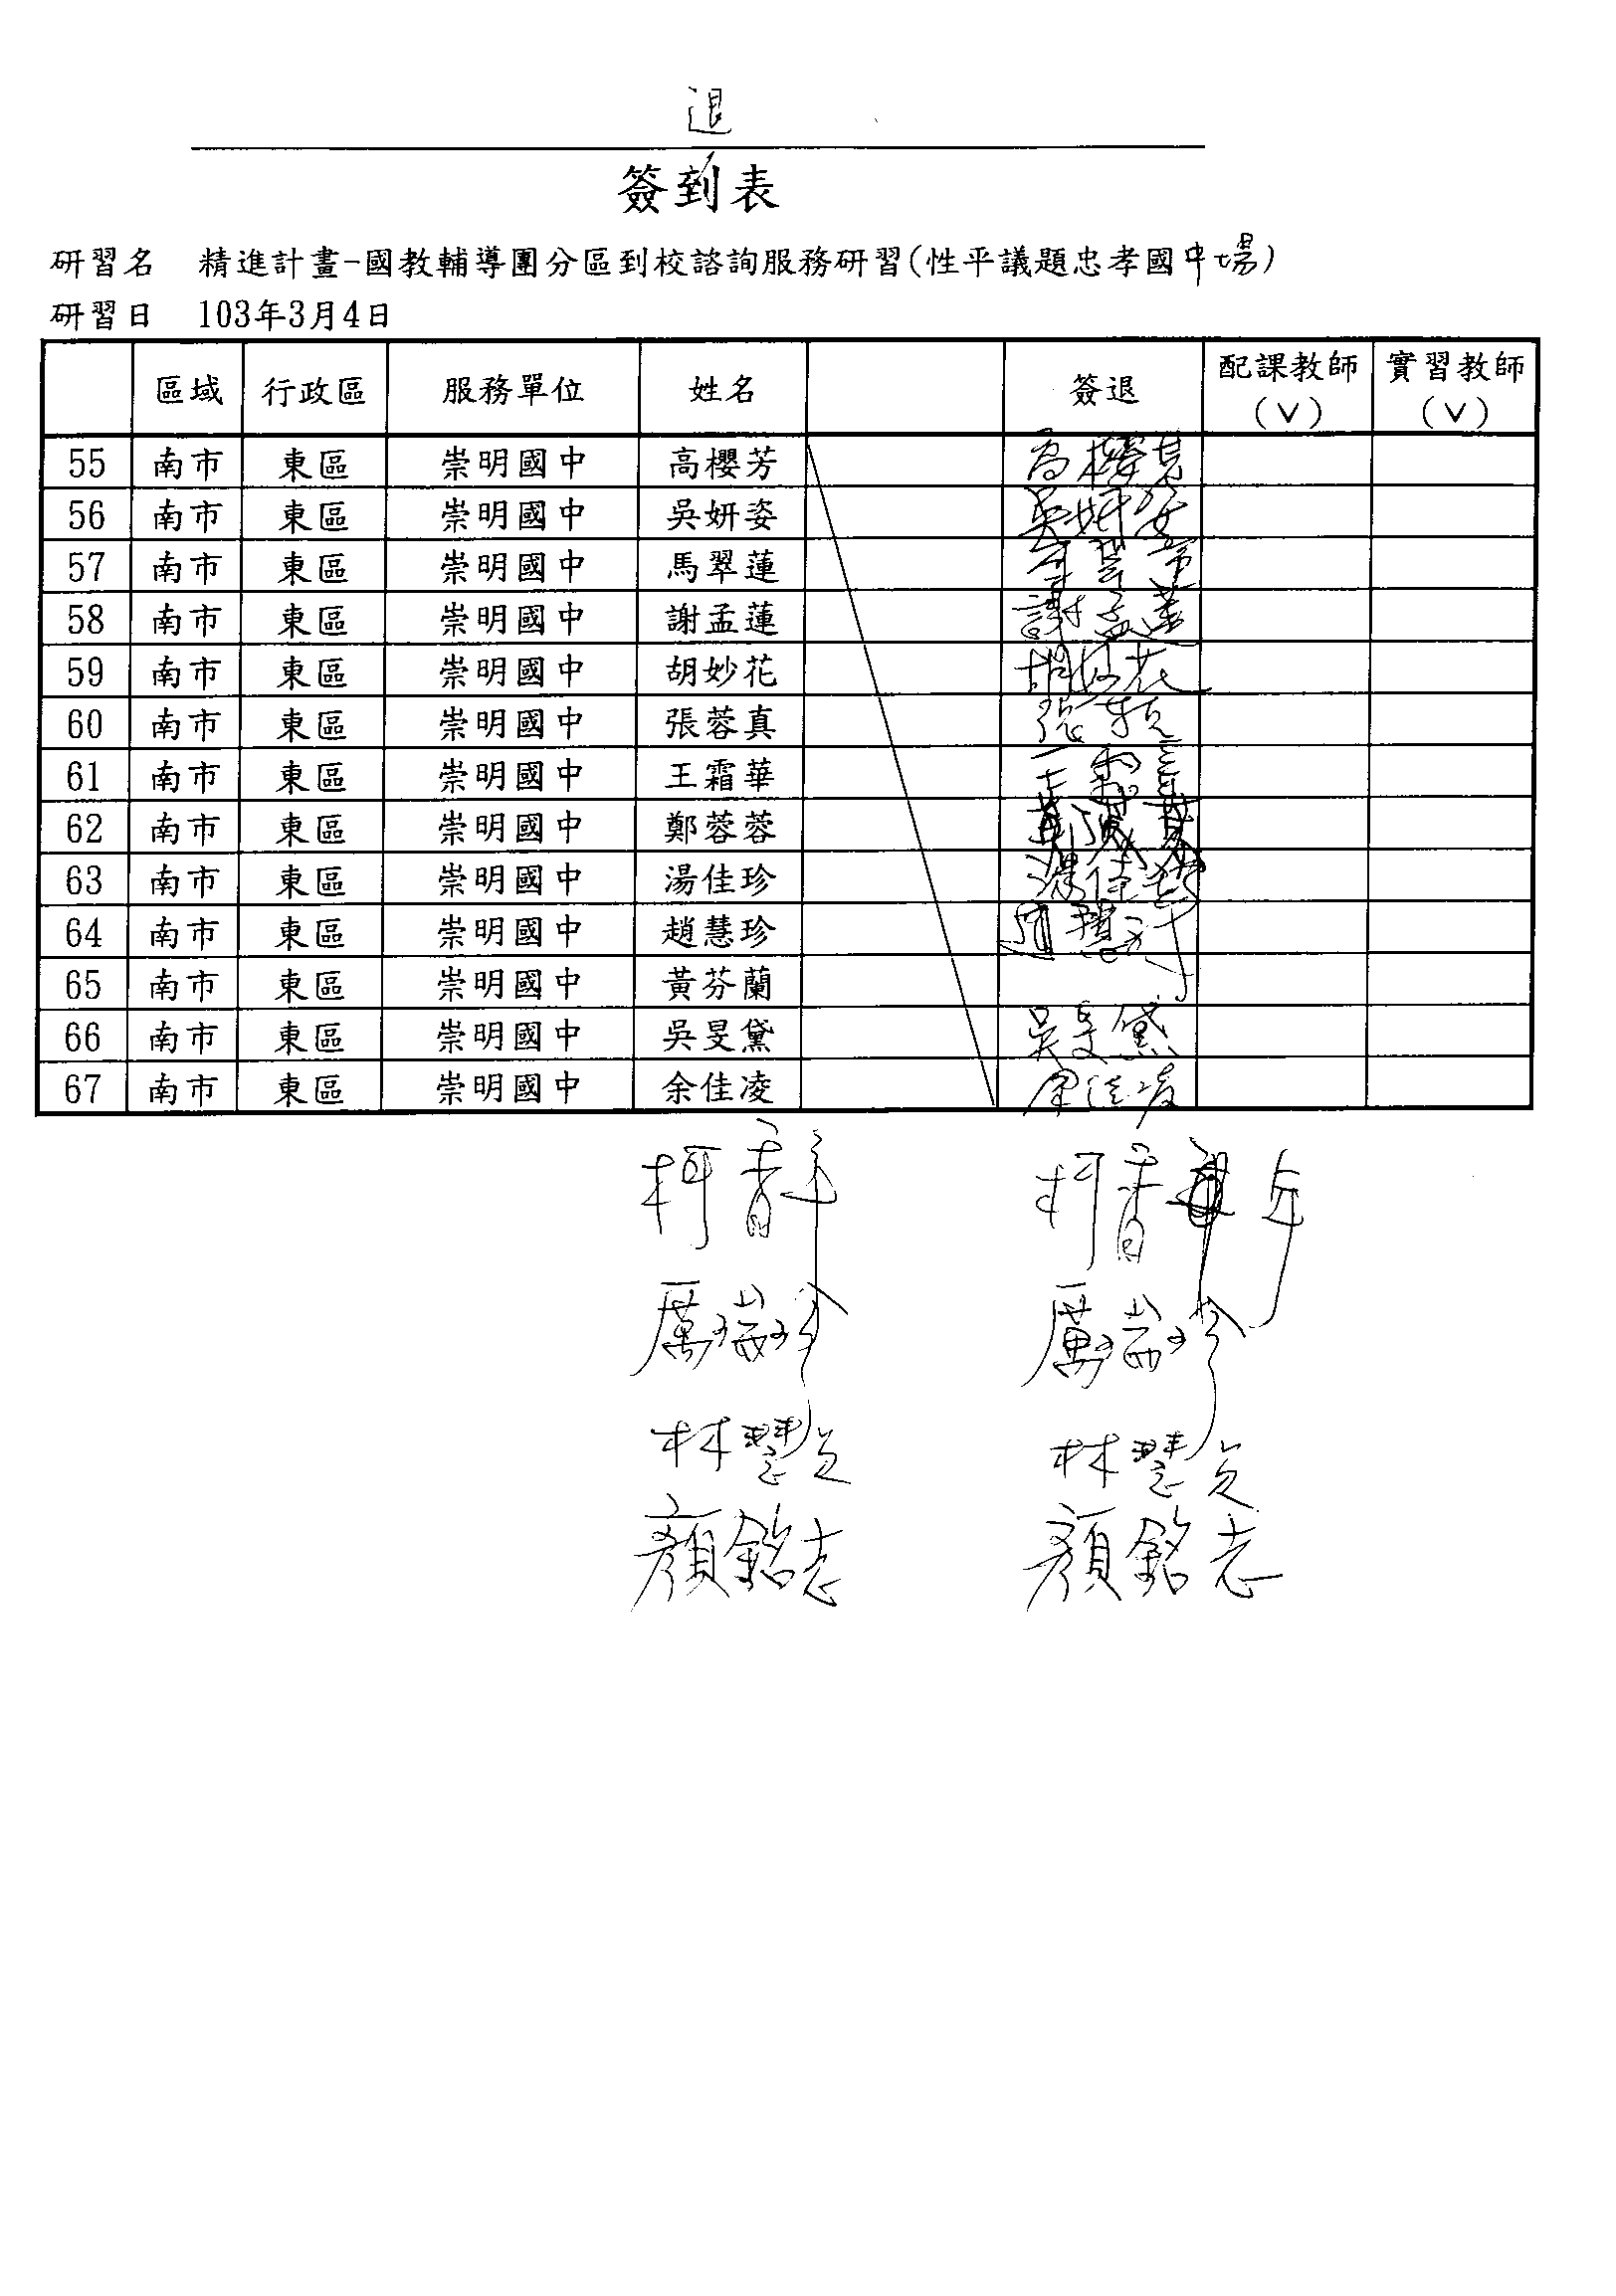 退
簽到表
研習名 精進計畫-國教輔導團分區到校諮詢服務研習(性平議題忠孝國中場)
研習日 103年3月4日
區域 行政區 服務單位 姓名 簽退 配課教師(V) 實習教師(V)
55 南市 東區 崇明國中 高櫻芳 高櫻芳
56 南市 東區 崇明國中 吳妍姿 吳妍姿
57 南市 東區 崇明國中 馬翠蓮
58 南市 東區 崇明國中 謝孟蓮 謝孟蓮
59 南市 東區 崇明國中 胡妙花 胡妙花
60 南市 東區 崇明國中 張蓉真
61 南市 東區 崇明國中 王霜華 王霜華
62 南市 東區 崇明國中 鄭蓉蓉
63 南市 東區 崇明國中 湯佳珍 湯佳珍
64 南市 東區 崇明國中 趙慧珍 趙慧珍
65 南市 東區 崇明國中 黃芬蘭
66 南市 東區 崇明國中 吳旻黛 吳旻黛
67 南市 東區 崇明國中 余佳凌 余佳凌
柯香 柯香
厲瑞珍 厲瑞珍
林慧貞 林慧貞
顏銘志 顏銘志